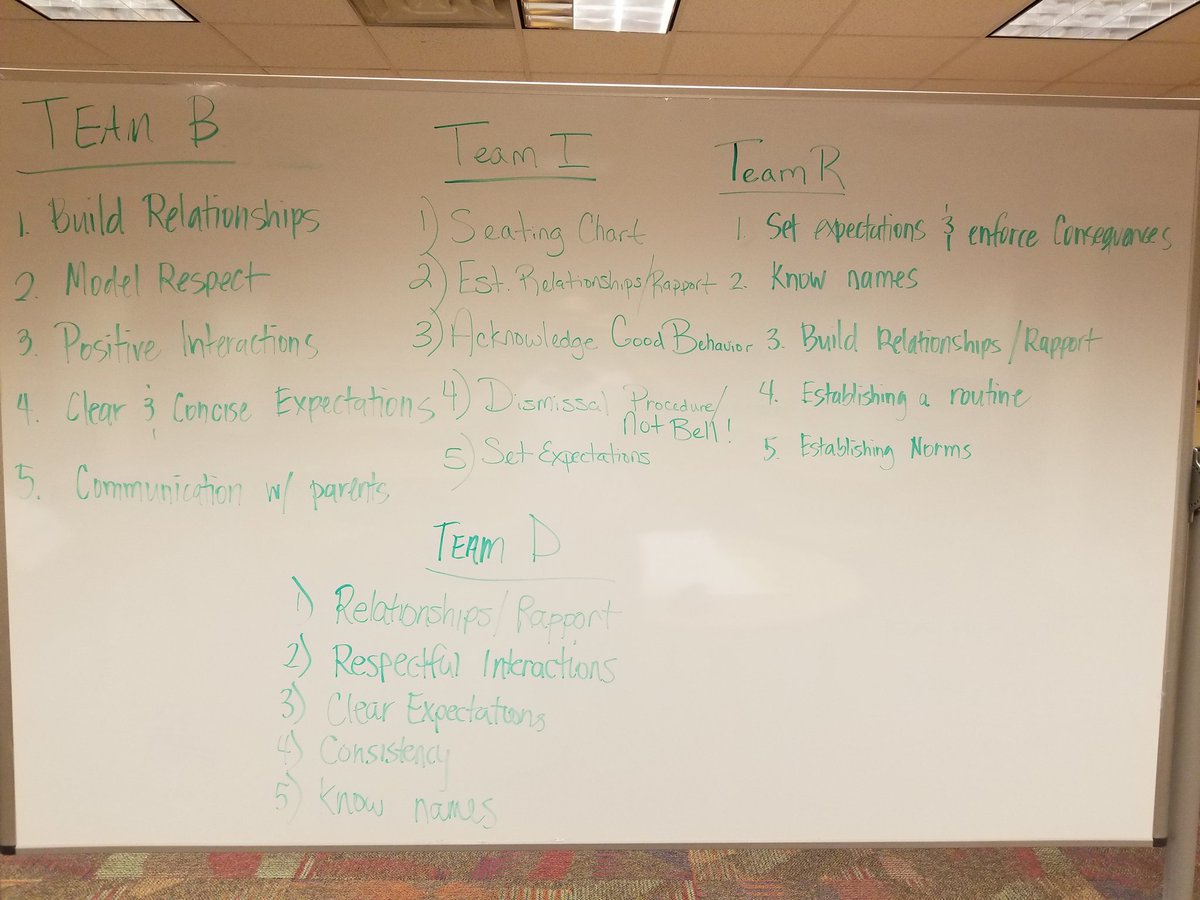 TEAM B
1. Build Relationships
2. Model Respect
3. Positive Interactions
4. Clear & Concise Expectations
5. Communication w/ parents
Team I
1) Seating Chart
2) Est. Relationships/Rapport
3) Acknowledge Good Behavior
4) Dismissal Procedure/
Not Bell!
5) Set Expectations
Team R
1. Set expectations & enforce Consequences
2. Know names
3. Build Relationships/Rapport
4. Establishing a routine
5. Establishing Norms
TEAM D
1) Relationships/Rapport
2) Respectful Interactions
3) Clear Expectations
4) Consistency
5) Know names